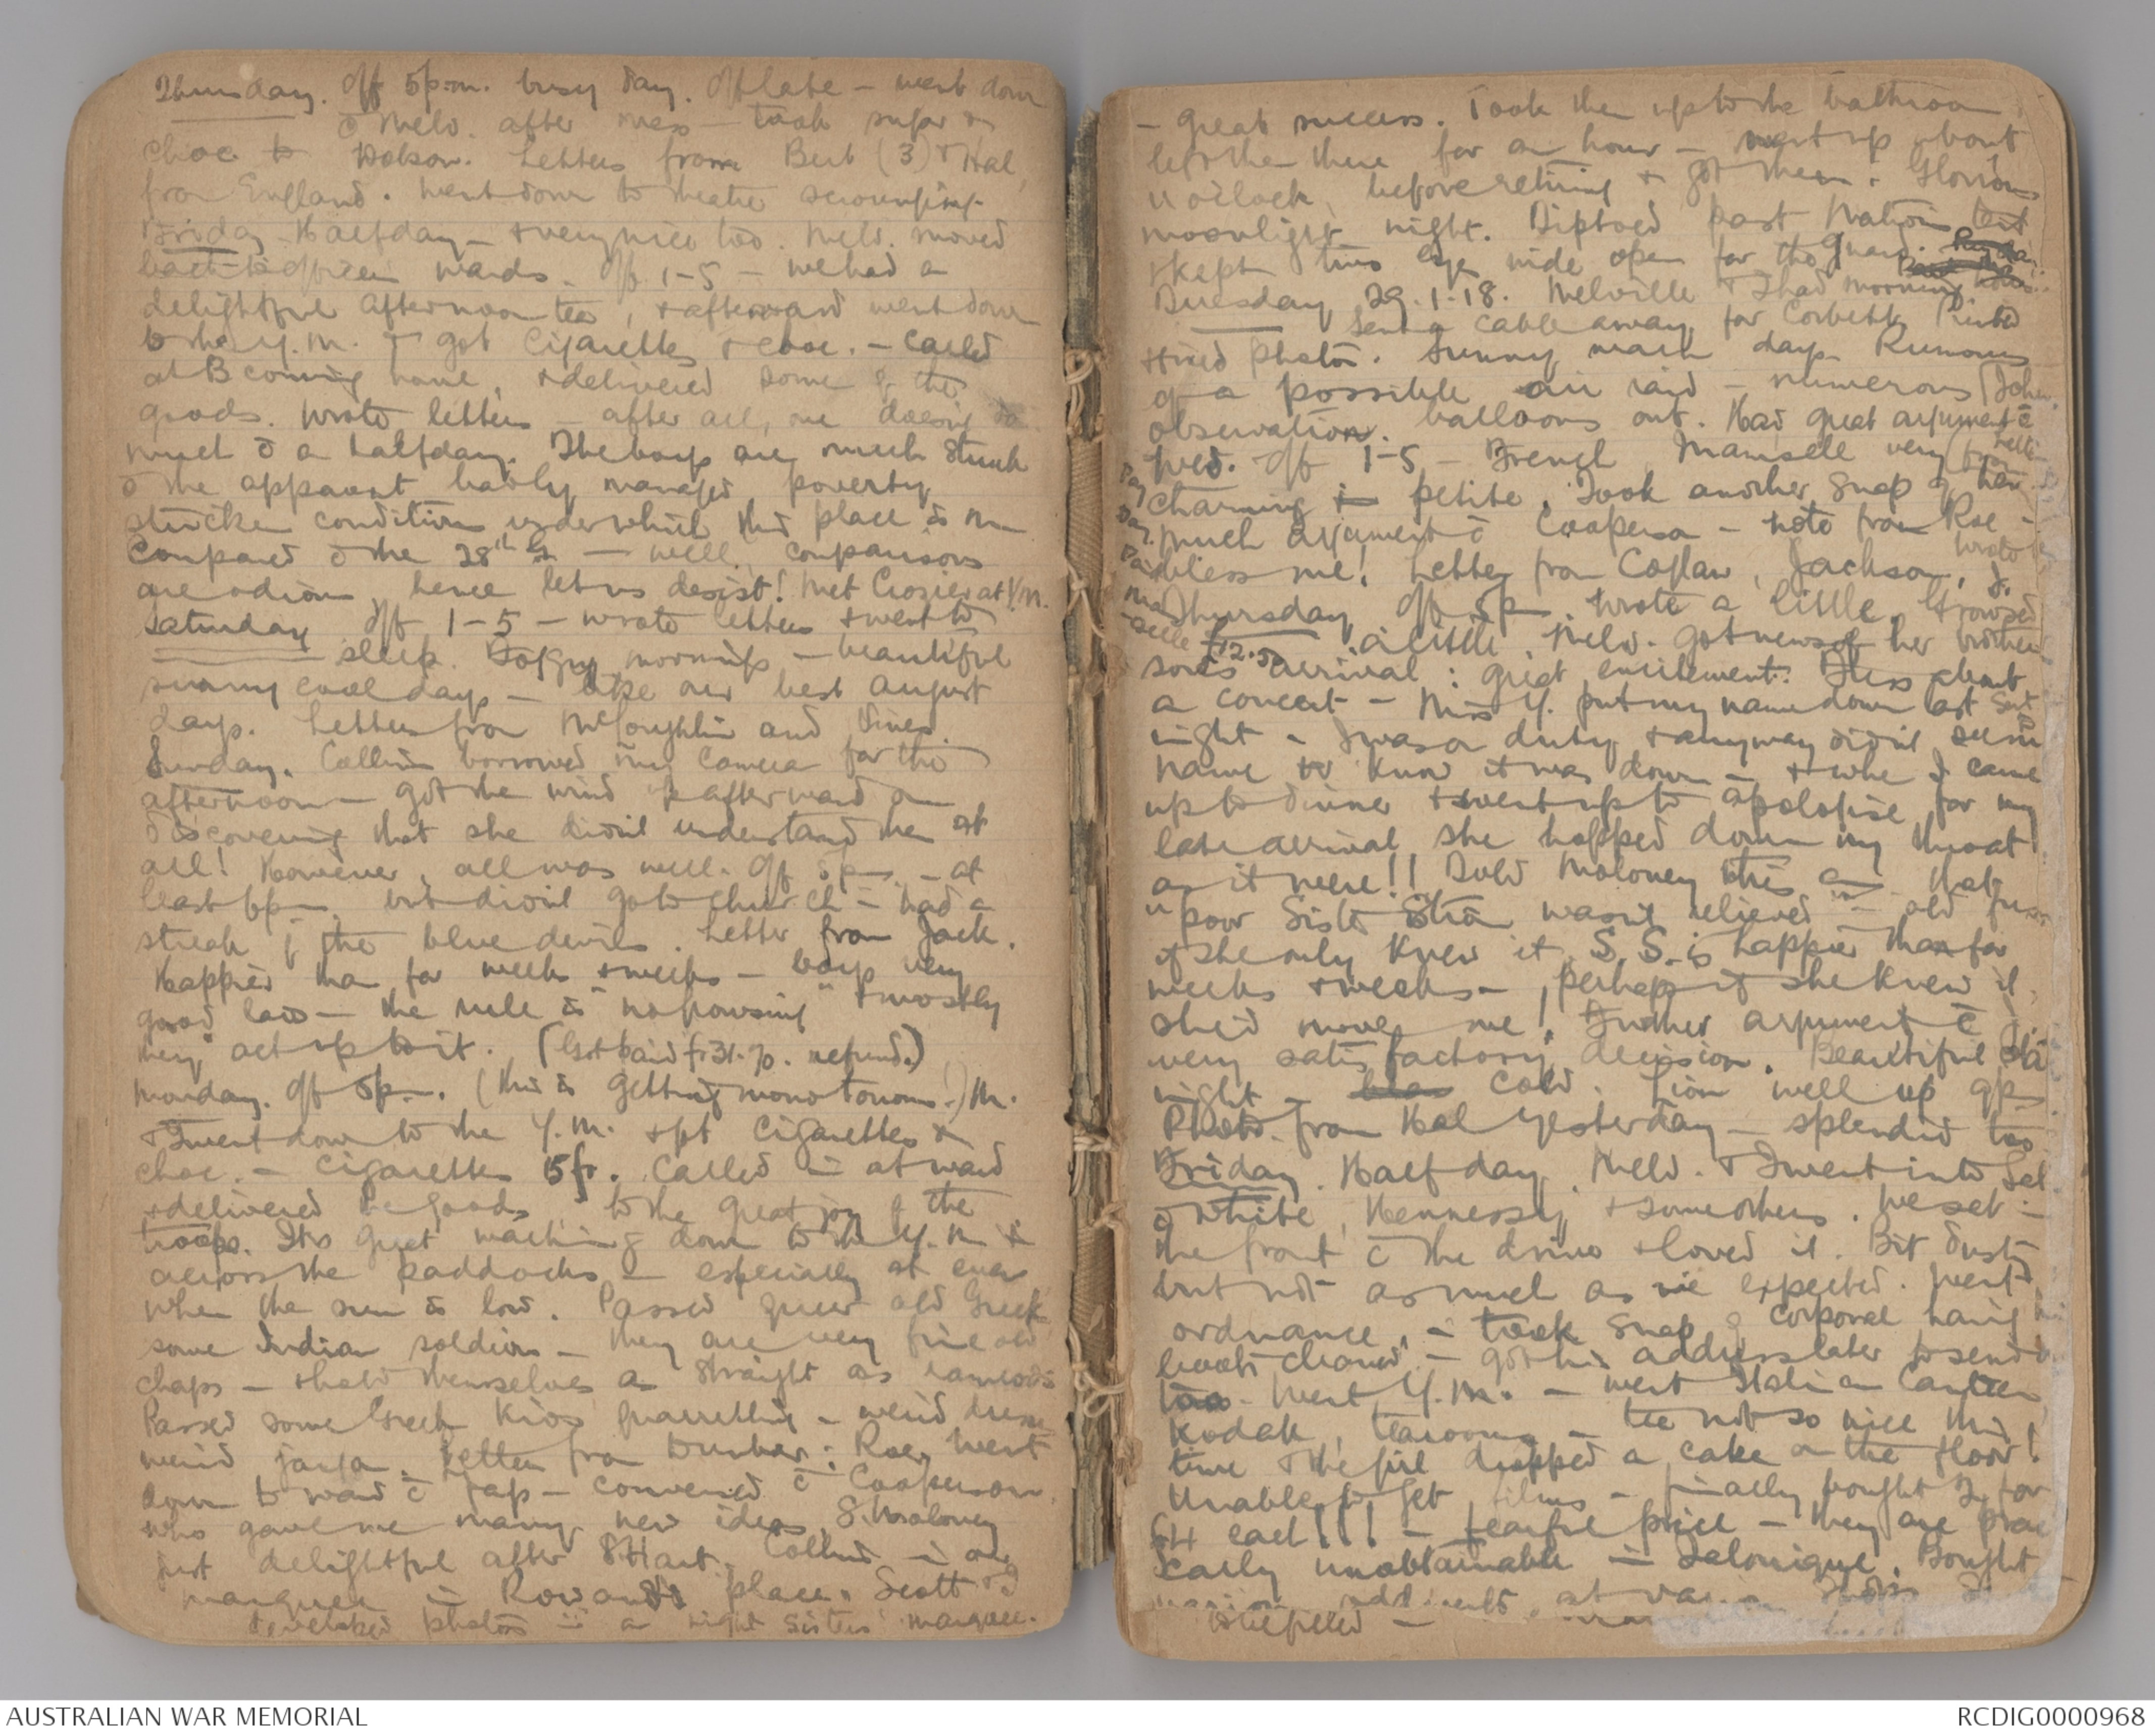 Thursday. Off 5p.m. busy day. Off late – went down
c̄ Melv. after mess – took sugar &
choc to Hobson. Letters from Bert (3) & Hal,
from England. Went down to theatre scrounging.
Friday Halfday – & very nice too. Melv. moved
back to officers wards. Off 1-5 – we had a
delightful afternoon tea, & afterward went down
to the Y.M. & got cigarettes & choc. – called
at B coming home, & delivered some of the
goods. Wrote letters – after all, one doesn't do
much c̄ a halfday. The boys are much struck
c̄ the apparent badly managed, poverty
stricken condition under which this place is run
compared c̄ the 28th G. – well, comparisons
are odious, hence let us desist! Met Crozier at Y.M.
Saturday Off 1-5 – wrote letters & went to
sleep. Foggy mornings – beautiful
sunny cool days – like our best August
days. Letters from McLoughlin and Vines.
Sunday. Collins borrowed my camera for the
afternoon – got the wind up afterward on
discovering that she didn't understand them at
all! However, all was well. Off 5pm – at
least 6pm, but didn't go to church – had a
streak of the blue devils. Letter from Jack.
Happier than for weeks & weeks – boys very
good lads – the rule is "no growsing" & mostly
they act up to it. (Got paid fr 31.70. refund.)
Monday. Off 5p.m. (this is getting monotonous!) M.
& I went down to the Y.M. & got cigarettes &
choc. – cigarettes 15fr. Called in at ward
& delivered the goods, to the great joy of the
troops. It's great walking down to the Y.M. &
across the paddocks – especially at even
when the sun is low. Passed queer old Greek
some Indian soldiers – they are very fine old
chaps – & hold themselves as straight as ramrods
Passed some Greek kids quarrelling – weird dress
weird jargon. Letters from Dunbar: Roe, went
down to ward c̄ Jap – conversed c̄ Cooperson,
who gave me many new ideas. S. Maloney
just delightful after S. Hart. Collins in our
marquee in Rowand's place. Scott & I
developed photos in a night sisters' marquee.
– great success. Took them up to the bathroom
left them there for an hour – went up about
11 o'clock before retiring & got them. Glorious
moonlight night. Tiptoed past Matron's tent
& kept two eyes wide open for the guard.
Tuesday 29.1.18. Melville & I had morning
Sent a cable away for Corbett. Printed
& fixed photos. Sunny warm day. Rumours
of a possible air raid – numerous (John
observation balloons out. Had great argument c̄
Wed. Off 1-5 – French Mamselle very
charming petite. Took another snap of her
much argument c̄ Cooperson – note from Roe –
bless me! Letter from Coglan, Jackson, J.
Thursday Off 5p. Wrote a little, growsed
a little. Melv. got news of her brother
son's arrival: great excitement. Fuss about
a concert – Miss Y. put my name down last Sat
night – I was on duty & anyway didn't see my
name or know it was down – & when I came
up to dinner & went up to apologise for my
late arrival she hopped down my throat
as it were!! Told Maloney this am that
"poor Sister wasn't relieved" – old
if she only knew it, S.S. is happier than for
weeks & weeks – perhaps if she knew it,
she'd move me! Further argument c̄
very satisfactory decision. Beautiful
night – cold. Lion well up 9p.
Photo from Hal yesterday – splendid too
Friday. Half day. Melv. & I went into Sal.
c̄ White, Hennessy & some others. We sat in
the front c̄ the driver & loved it. Bit dusty
but not as much as we expected. Went
ordnance, – took snap of corporal having
boots cleaned – got his address later to send
too. Went Y.M. – went Italian Canteen
Kodak, tearooms – tea not so nice this
time & the girl dropped a cake on the floor!
Unable to get films – finally bought 2 for
6/4 each!!! – fearful price – they are practi
cally unobtainable in Salonique. Bought
AUSTRALIAN WAR MEMORIAL
RCDIG0000968